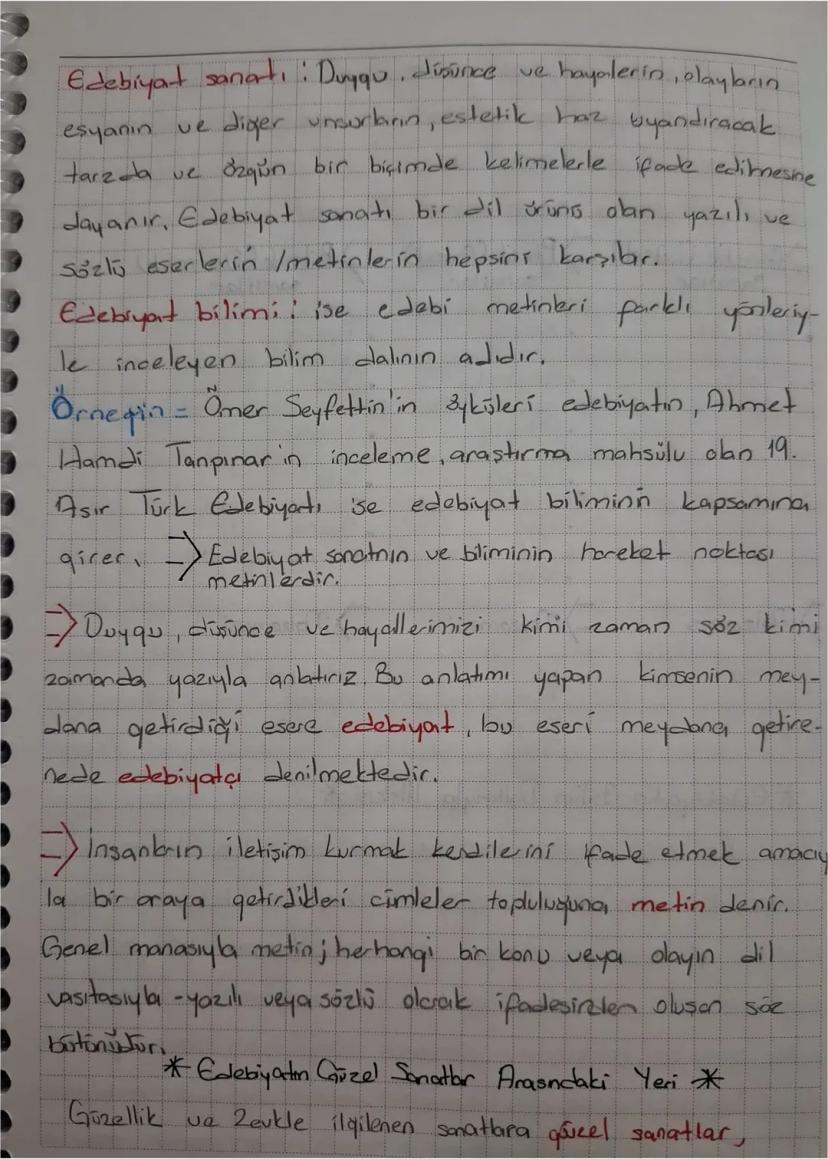 Edebiyat sanatı : Duygu, düşünce ve hayallerin, olayların
eşyanın ve diğer unsurların, estetik haz uyandıracak
tarzda ve özgün bir biçimde kelimelerle ifade edilmesine
dayanır. Edebiyat sanatı bir dil ürünü olan yazılı ve
sözlü eserlerin /metinlerin hepsini karşılar.
Edebiyat bilimi : ise edebi metinleri farklı yönleriy-
le inceleyen bilim dalının adıdır.
Örneğin = Ömer Seyfettin'in öyküleri edebiyatın, Ahmet
Hamdi Tanpınar'ın inceleme, araştırma mahsülu olan 19.
Asır Türk Edebiyatı ise edebiyat biliminin kapsamına
girer. => Edebiyat sanatnın ve biliminin hareket noktası
metinlerdir.
=> Duygu, düşünce ve hayallerimizi kimi zaman söz kimi
zamanda yazıyla anlatırız. Bu anlatımı yapan kimsenin mey-
dana getirdiği esere edebiyat, bu eseri meydana getire-
nede edebiyatçı denilmektedir.
=> İnsanların iletişim kurmak kendilerini ifade etmek amacıy
la bir araya getirdikleri cümleler topluluğuna metin denir.
Genel manasıyla metin; herhangi bir konu veya olayın dil
vasıtasıyla -yazılı veya sözlü olarak ifadesinden oluşan söz
bütünüdür.
* Edebiyatın Güzel Sanatlar Arasındaki Yeri *
Güzellik ve zevkle ilgilenen sanatlara güzel sanatlar,